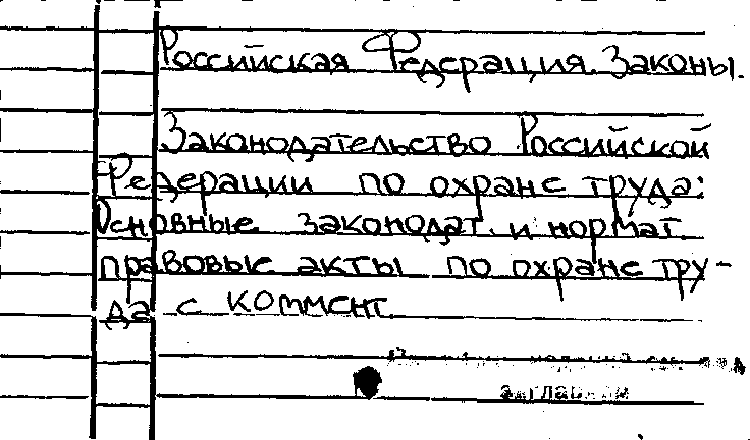 Российская Федерация. Законы.
Законодательство Российской
Федерации по охране труда:
Основные законодат. и нормат.
правовые акты по охране тру-
да с коммент.